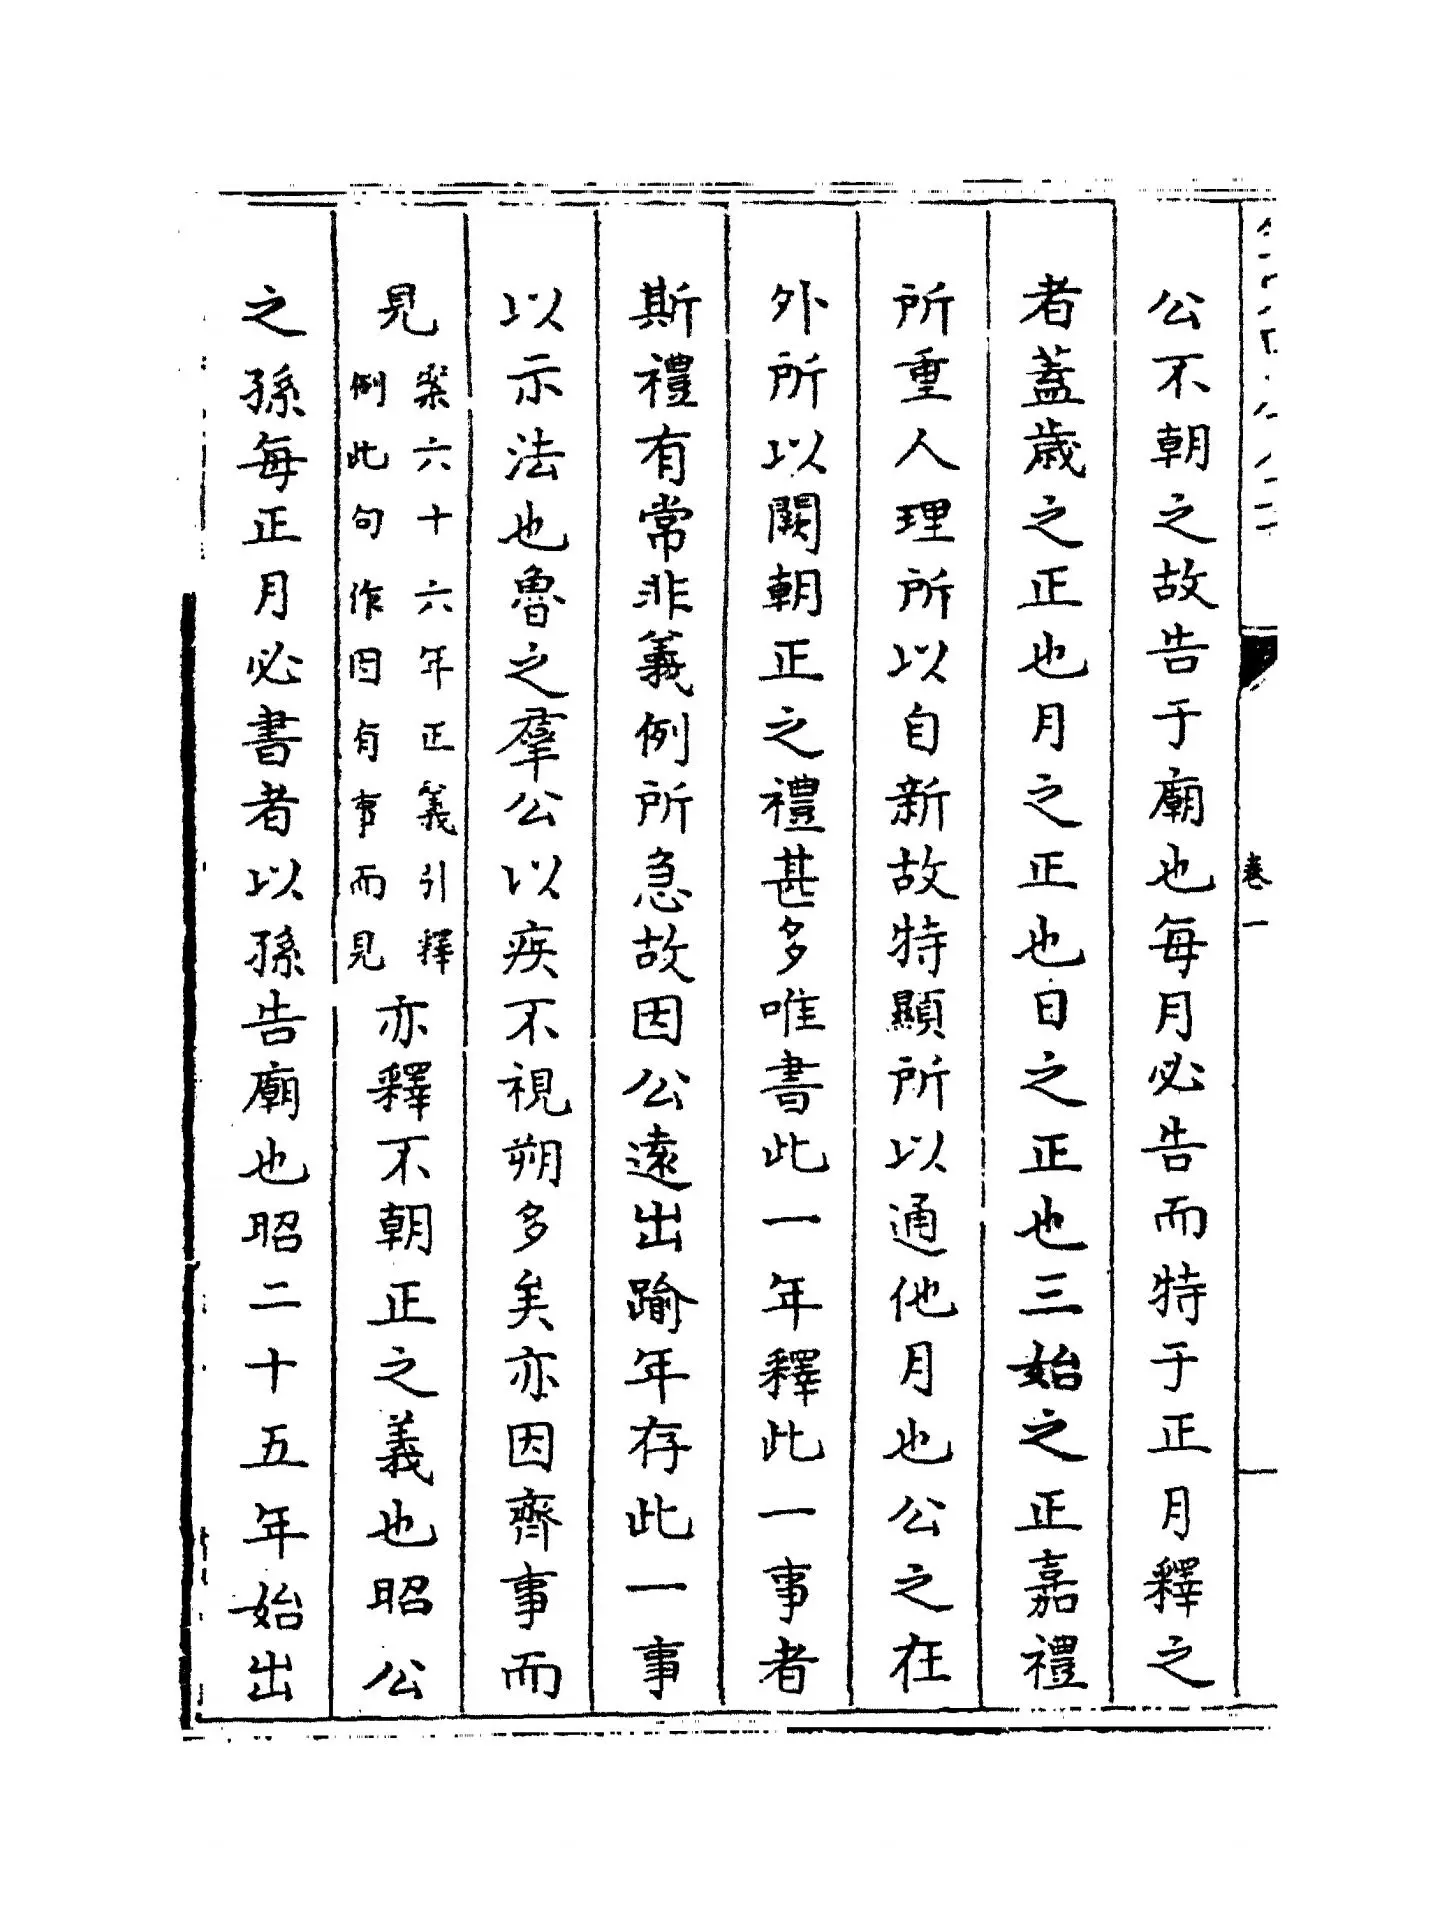 卷一
公不朝之故告于廟也每月必告而特于正月釋之
者蓋歳之正也月之正也日之正也三始之正嘉禮
所重人理所以自新故特顯所以通他月也公之在
外所以闕朝正之禮甚多唯書此一年釋此一事者
斯禮有常非義例所急故因公遠出踰年存此一事
以示法也魯之羣公以疾不視朔多矣亦因齊事而
見
案六十六年正義引釋
例此句作因有事而見
亦釋不朝正之義也昭公
之孫每正月必書者以孫告廟也昭二十五年始出